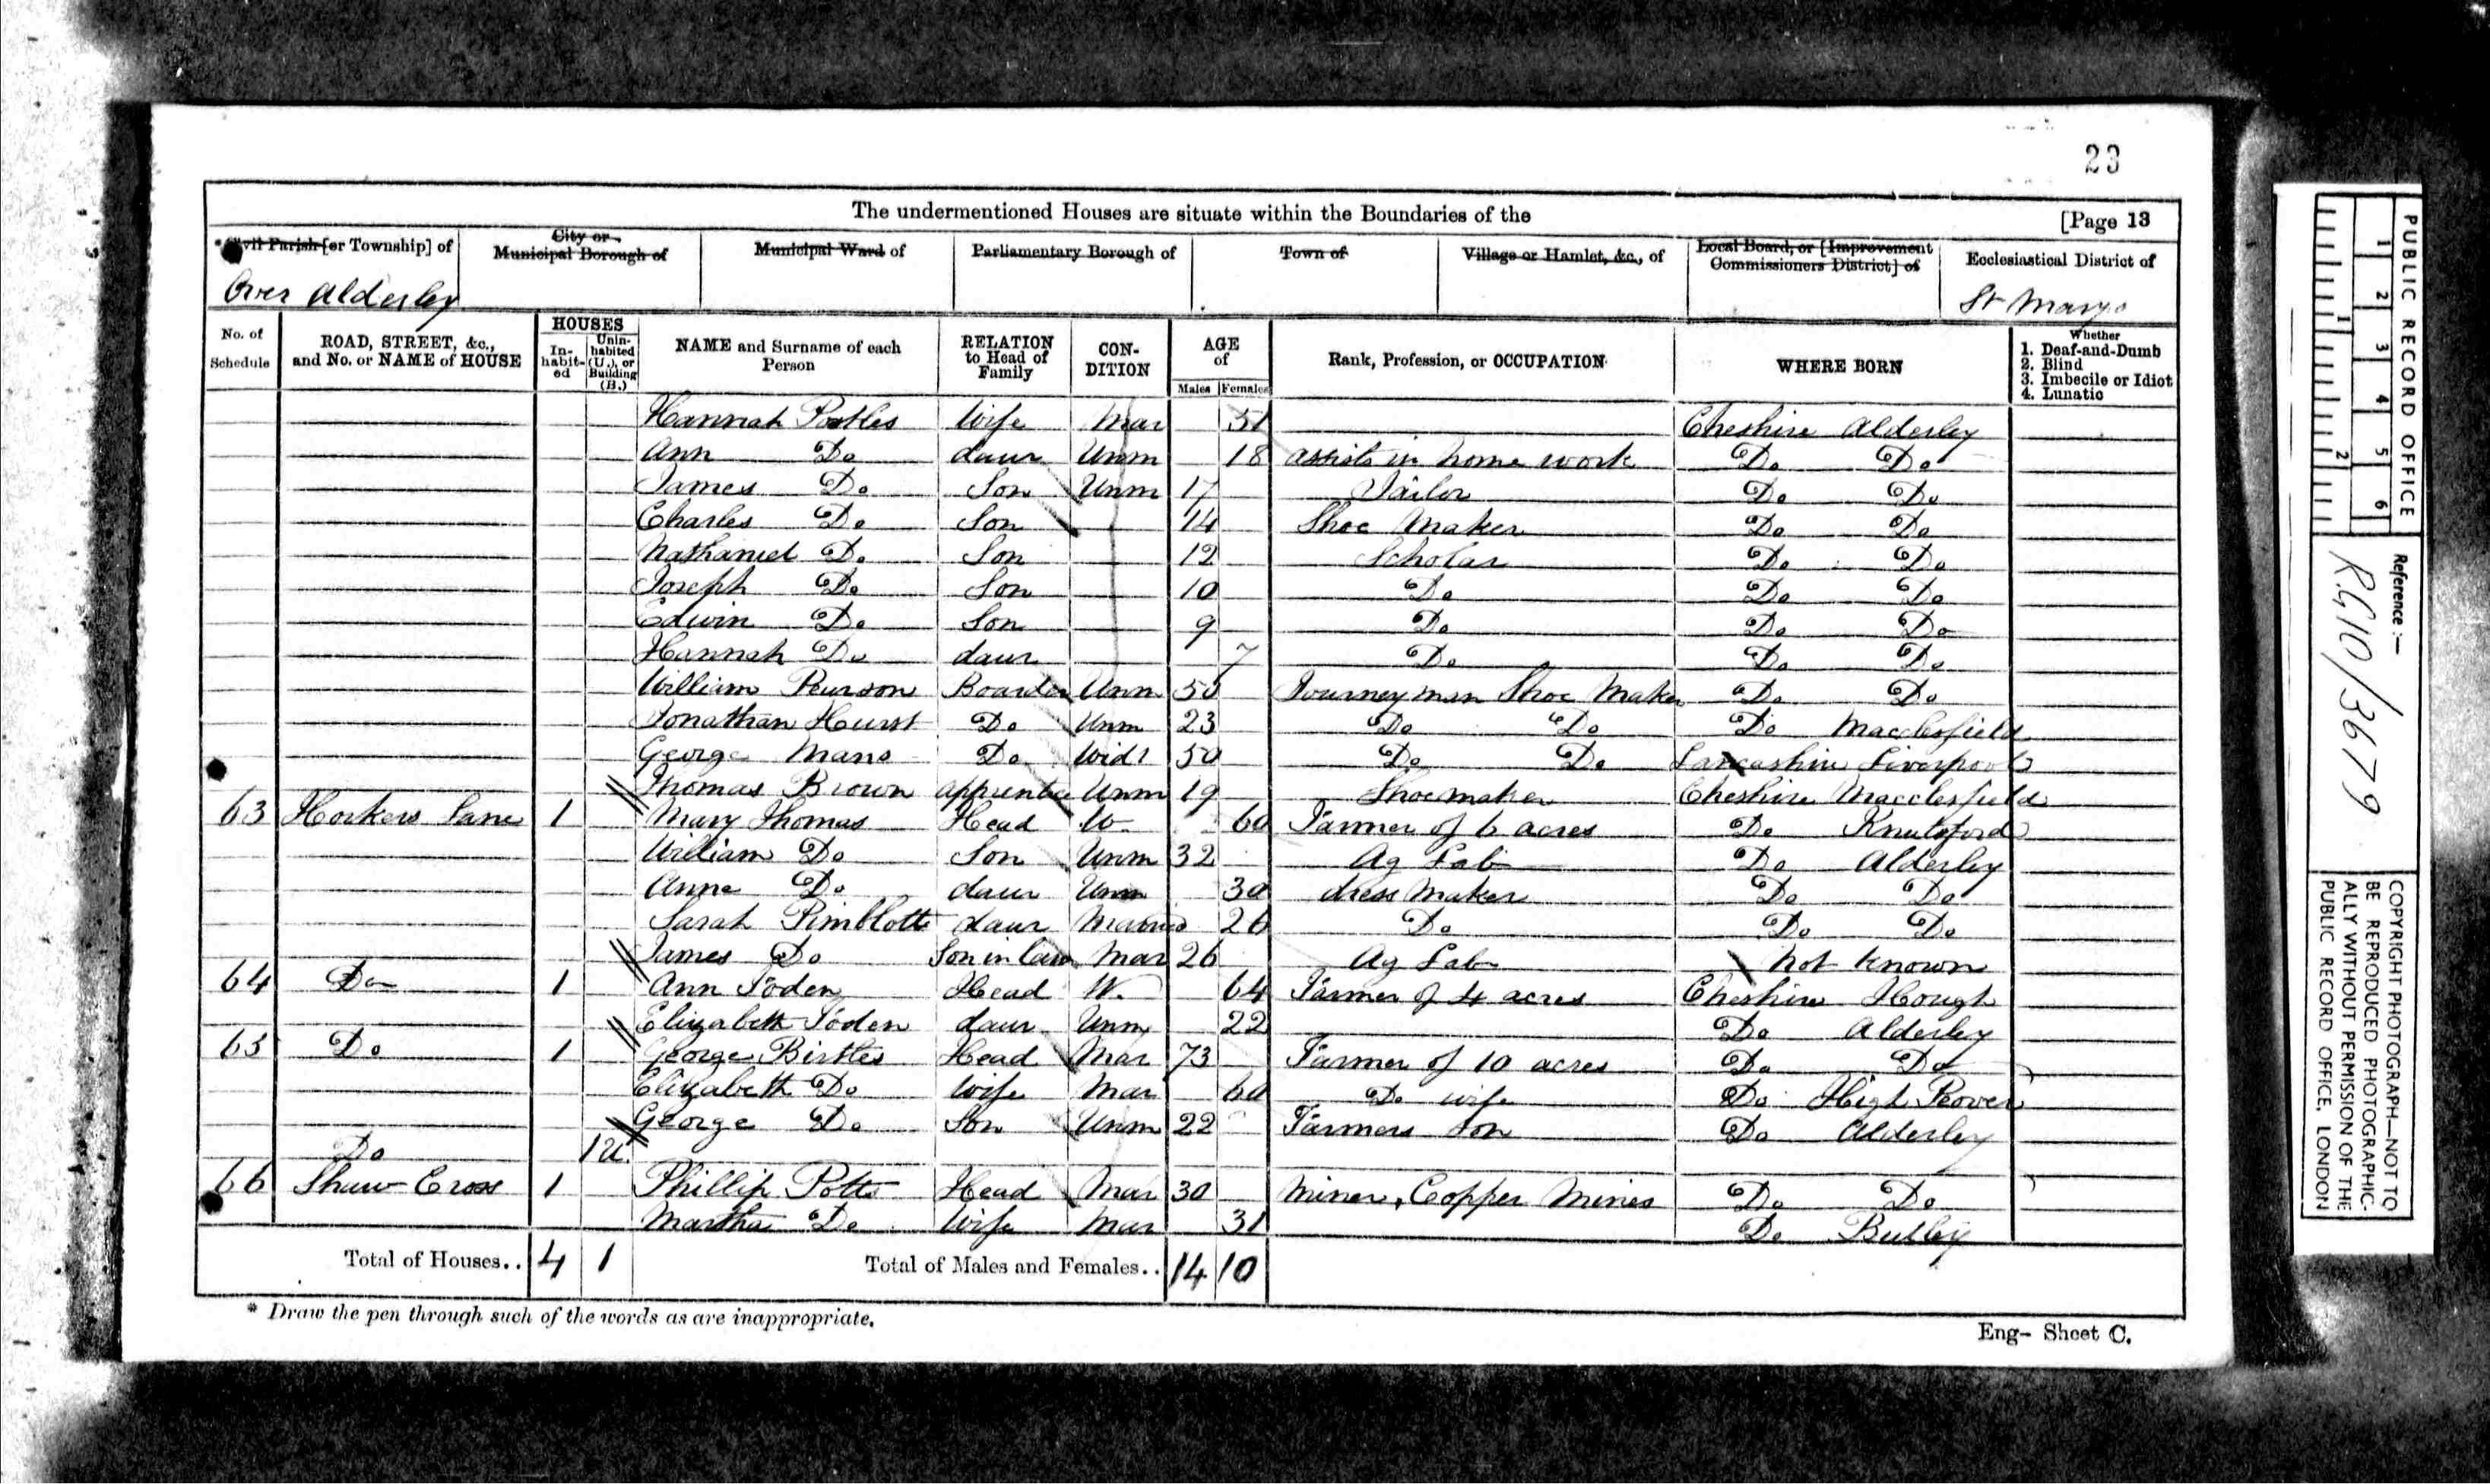 23
The undermentioned Houses are situate within the Boundaries of the
[Page 13
Civil Parish [or Township] of
City or Municipal Borough of
Municipal Ward of
Parliamentary Borough of
Town of
Village or Hamlet, &c., of
Local Board, or [Improvement Commissioners District] of
Ecclesiastical District of
Over Alderley
St Marys
No. of Schedule
ROAD, STREET, &c., and No. or NAME of HOUSE
HOUSES
In-habit-ed
Unin-habited (U.), or Building (B.)
NAME and Surname of each Person
RELATION to Head of Family
CON-DITION
AGE of
Males Females
Rank, Profession, or OCCUPATION
WHERE BORN
Whether
1. Deaf-and-Dumb
2. Blind
3. Imbecile or Idiot
4. Lunatic
Hannah wife Mar 51 Cheshire Alderley
Ann Do daur Unm 18 assists in home work Do Do
James Do Son Unm 17 Tailor Do Do
Charles Do Son 14 Shoe Maker Do Do
Nathaniel Do Son 12 Scholar Do Do
Joseph Do Son 10 Do Do Do
Edwin Do Son 9 Do Do Do
Hannah Do daur 7 Do Do Do
William Pearson Boarder Unm 50 Journeyman Shoe Maker Do Do
Jonathan Hurst Do Unm 23 Do Do Do Macclesfield
George Do 50 Do Do Lancashire Liverpool
Thomas Brown apprentice Unm 19 Shoemaker Cheshire Macclesfield
63 Hockers Lane 1 Mary Thomas Head W. 60 Farmer of 6 acres Do Knutsford
William Do Son Unm 32 Ag Lab Do Alderley
Anne Do daur Unm 30 dress Maker Do Do
Sarah Pimblott daur Married 26 Do Do Do
James Do Son in law Mar 26 Ag Lab Not Known
64 Do 1 Ann Soden Head W. 64 Farmer of 4 acres Cheshire Hough
Elizabeth Soden daur Unm 22 Do Alderley
65 Do 1 George Birtles Head Mar 73 Farmer of 10 acres Do Do
Elizabeth Do wife Mar 60 Do wife Do High
George Do Son Unm 22 Farmers Son Do Alderley
Do 1U
66 Shaw Cross 1 Phillip Potts Head Mar 30 Miner, Copper Mines Do Do
Martha Do Wife Mar 31 Do Butley
Total of Houses.. 4 1 Total of Males and Females.. 14 10
* Draw the pen through such of the words as are inappropriate.
Eng- Sheet C.
PUBLIC RECORD OFFICE
1 2 3 4 5 6
1 2
Reference:—
RG10/3679
COPYRIGHT PHOTOGRAPH—NOT TO
BE REPRODUCED PHOTOGRAPHIC-
ALLY WITHOUT PERMISSION OF THE
PUBLIC RECORD OFFICE, LONDON